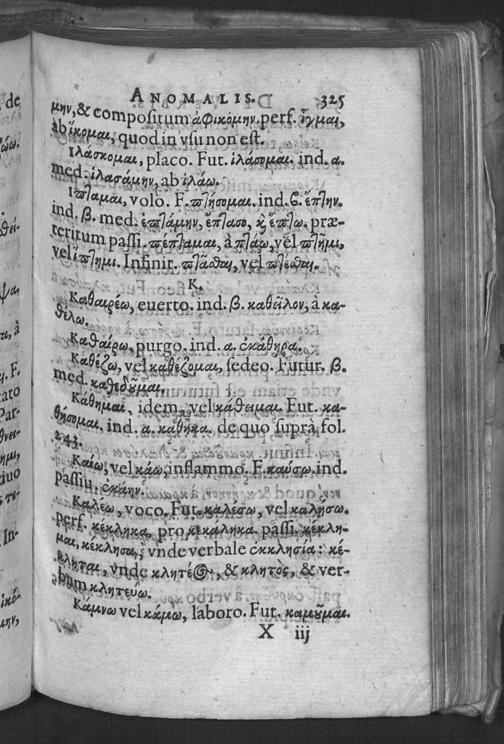 ANOMALIS. 325
μην, & compositum ἀφικόμην. perf. ἷγμαι,
ab ἵκομαι, quod in vsu non est.
Ἱλάσκομαι, placo. Fut. ἱλάσομαι. ind. α.
med. ἱλασάμην, ab ἱλάω.
Ἵπταμαι, volo. F. πτήσομαι. ind. ϐ. ἔπτην.
ind. β. med. ἐπτάμην, ἔπτασο, καὶ ἔπτω. præ-
teritum passi. πέπταμαι, à πτάω, vel πτῆμι,
vel ἵπτημι. Infinit. πτᾶσθαι, vel πτέσθαι.
K.
Καθαιρέω, euerto. ind. β. καθεῖλον, à κα-
θέλω.
Καθαίρω, purgo. ind. α. ἐκάθηρα.
Καθέζω, vel καθέζομαι, sedeo. Futur. β.
med. καθεδοῦμαι.
Κάθημαι, idem, vel κάθειμαι. Fut. κα-
θήσομαι. ind. α. κάθηκα. de quo suprà fol.
243.
Καίω, vel κάω, inflammo. F. καύσω. ind.
passiu. ἐκάην.
Καλέω, voco. Fut. καλέσω, vel καλήσω.
perf. κέκληκα, pro κεκάληκα. passi. κέκλη-
μαι, κέκλησαι, vnde verbale ἐκκλησία: κέ-
κληται, vnde κλητέος, & κλητὸς, & ver-
bum κλητεύω.
Κάμνω vel κάμω, laboro. Fut. καμοῦμαι.
X iij